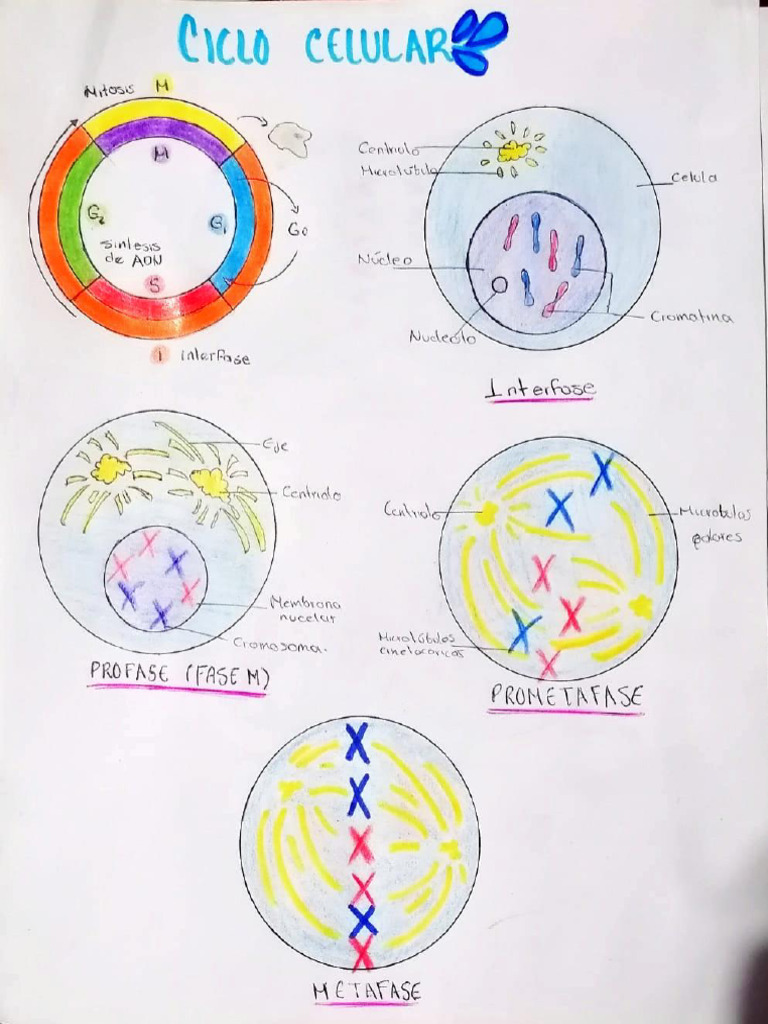 CICLO CELULAR
Mitosis M
M
G2
G1
G0
Sintesis
de ADN
S
I interfase
Centriolo
Microtúbulo
Celula
Núcleo
Nucleolo
Cromatina
Interfase
Eje
Centriolo
Membrana
nucelar
Cromosoma.
PROFASE (FASE M)
Centriolo
Microtubulos
polores
Microtúbulos
cinetocoricos
PROMETAFASE
METAFASE